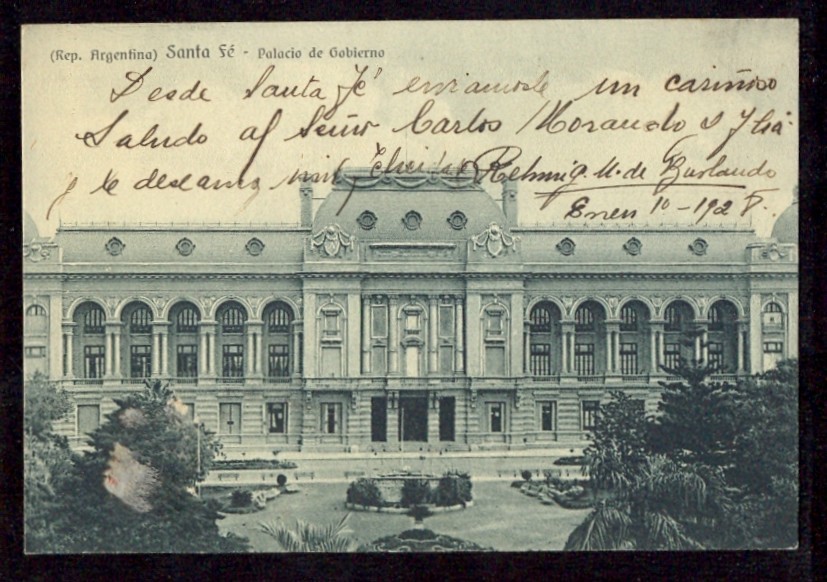 (Rep. Argentina) Santa Fé - Palacio de Gobierno
Desde Santa Fé enviamosle un cariñoso
Saludo al Señor Carlos Morando y Flia.
y le deseamos mil felicidades M. de Burlando
Enero 10-1928.